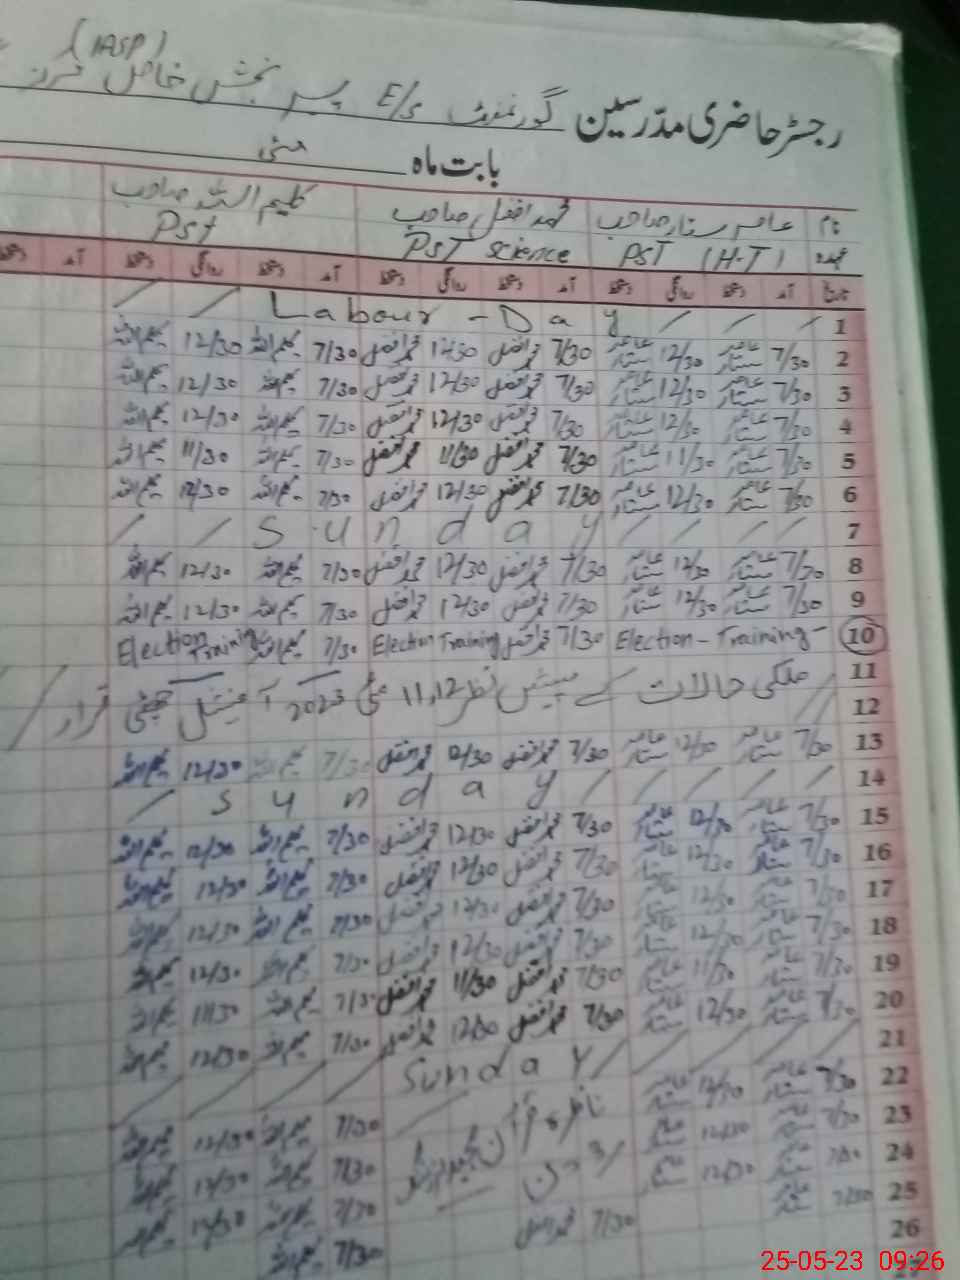 (IASP)
گورنمنٹ E/S پیر بخش خاص
رجسٹر حاضری مدرسین
بابت ماہ مئی
نام عامر ستار صاحب محمد افضل صاحب کلیم اللہ صاحب
عہدہ PST (H-T) PST Science Pst
تاریخ آمد دستخط روانگی دستخط آمد دستخط روانگی دستخط آمد دستخط روانگی دستخط آمد
1 Labour - Day
2 7/30 عامر ستار 12/30 عامر ستار 7/30 محمد افضل 12/30 محمد افضل 7/30 کلیم اللہ 12/30 کلیم اللہ
3 7/30 عامر ستار 12/30 عامر ستار 7/30 محمد افضل 12/30 محمد افضل 7/30 کلیم اللہ 12/30 کلیم اللہ
4 7/30 عامر ستار 12/30 عامر ستار 7/30 محمد افضل 12/30 محمد افضل 7/30 کلیم اللہ 12/30 کلیم اللہ
5 7/30 عامر ستار 11/30 عامر ستار 7/30 محمد افضل 11/30 محمد افضل 7/30 کلیم اللہ 11/30 کلیم اللہ
6 7/30 عامر ستار 12/30 عامر ستار 7/30 محمد افضل 12/30 محمد افضل 7/30 کلیم اللہ 12/30 کلیم اللہ
7 Sunday
8 7/30 عامر ستار 12/30 عامر ستار 7/30 محمد افضل 12/30 محمد افضل 7/30 کلیم اللہ 12/30 کلیم اللہ
9 7/30 عامر ستار 12/30 عامر ستار 7/30 محمد افضل 12/30 محمد افضل 7/30 کلیم اللہ 12/30 کلیم اللہ
10 Election - Training - 7/30 محمد افضل Election Training 7/30 کلیم اللہ Election Training
11
12 ملکی حالات کے پیش نظر 11,12 مئی 2023 آفیشل چھٹی قرار
13 7/30 عامر ستار 12/30 عامر ستار 7/30 محمد افضل 12/30 محمد افضل 7/30 کلیم اللہ 12/30 کلیم اللہ
14 Sunday
15 7/30 عامر ستار 12/30 عامر ستار 7/30 محمد افضل 12/30 محمد افضل 7/30 کلیم اللہ 12/30 کلیم اللہ
16 7/30 عامر ستار 12/30 عامر ستار 7/30 محمد افضل 12/30 محمد افضل 7/30 کلیم اللہ 12/30 کلیم اللہ
17 7/30 عامر ستار 12/30 عامر ستار 7/30 محمد افضل 12/30 محمد افضل 7/30 کلیم اللہ 12/30 کلیم اللہ
18 7/30 عامر ستار 12/30 عامر ستار 7/30 محمد افضل 12/30 محمد افضل 7/30 کلیم اللہ 12/30 کلیم اللہ
19 7/30 عامر ستار 11/30 عامر ستار 7/30 محمد افضل 11/30 محمد افضل 7/30 کلیم اللہ 11/30 کلیم اللہ
20 7/30 عامر ستار 12/30 عامر ستار 7/30 محمد افضل 12/30 محمد افضل 7/30 کلیم اللہ 12/30 کلیم اللہ
21 Sunday
22 7/30 عامر ستار 12/30 عامر ستار 7/30 کلیم اللہ 12/30 کلیم اللہ
23 7/30 عامر ستار 12/30 عامر ستار ناظرہ قرآن 7/30 کلیم اللہ 12/30 کلیم اللہ
24 7/30 عامر ستار 12/30 عامر ستار 7/30 کلیم اللہ 12/30 کلیم اللہ
25 7/30 عامر ستار 7/30 محمد افضل 7/30 کلیم اللہ
26
27
25-05-23 09:26